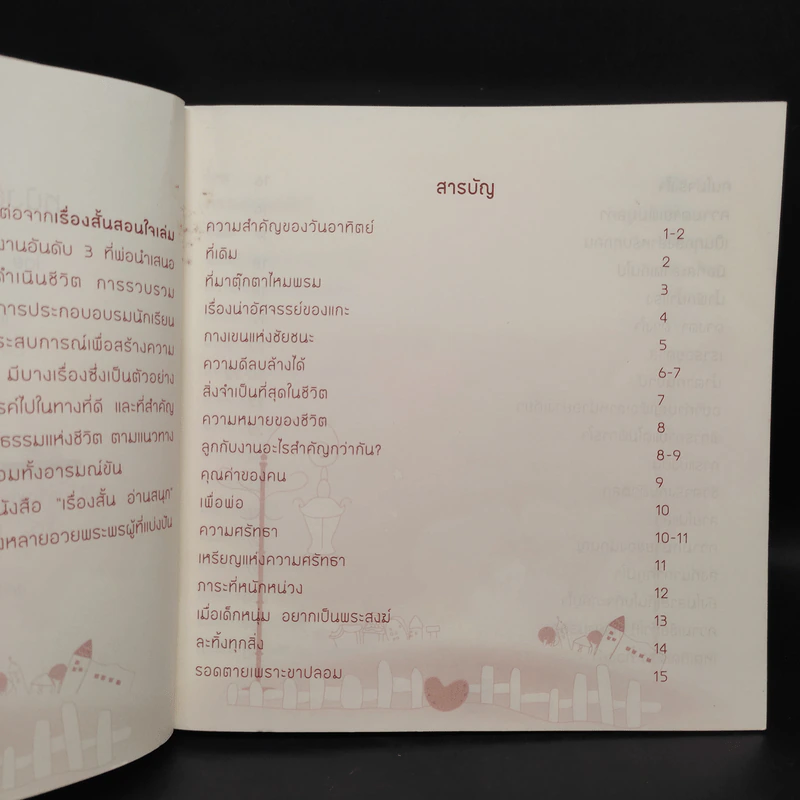 ต่อจากเรื่องสั้นสอนใจเล่ม
งานอันดับ 3 ที่พ่อนำเสนอ
ดำเนินชีวิต การรวบรวม
การประกอบอบรมนักเรียน
ระสบการณ์เพื่อสร้างความ
มีบางเรื่องซึ่งเป็นตัวอย่าง
รค์ไปในทางที่ดี และที่สำคัญ
ธรรมแห่งชีวิต ตามแนวทาง
อมทั้งอารมณ์ขัน
นังสือ "เรื่องสั้น อ่านสนุก"
งหลายอวยพระพรผู้ที่แบ่งปัน
สารบัญ
ความสำคัญของวันอาทิตย์ 1-2
ที่เดิม 2
ที่มาตุ๊กตาไหมพรม 3
เรื่องน่าอัศจรรย์ของแกะ 4
กางเขนแห่งชัยชนะ 5
ความดีลบล้างได้ 6-7
สิ่งจำเป็นที่สุดในชีวิต 7
ความหมายของชีวิต 8
ลูกกับงานอะไรสำคัญกว่ากัน? 8-9
คุณค่าของคน 9
เพื่อพ่อ 10
ความศรัทธา 10-11
เหรียญแห่งความศรัทธา 11
ภาระที่หนักหน่วง 12
เมื่อเด็กหนุ่ม อยากเป็นพระสงฆ์ 13
ละทิ้งทุกสิ่ง 14
รอดตายเพราะขาปลอม 15